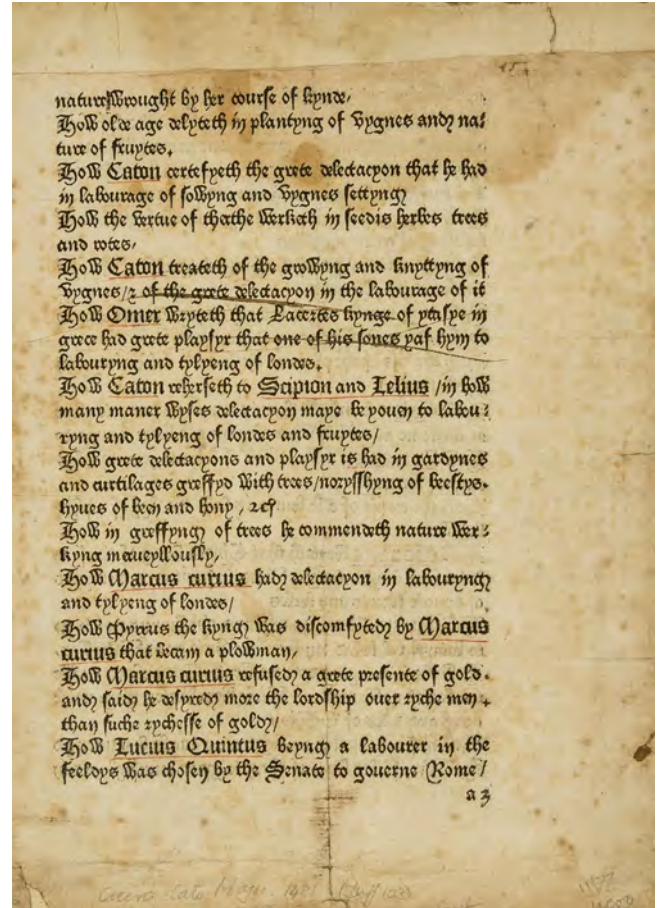 nature wrought by her course of kynde /
How olde age delyteth in plantyng of vygnes and na⸗
ture of fruytes.
How Caton certefyeth the grete delectacyon that he had
in labourage of sowyng and vygnes settyng
How the vertue of therthe werketh in seedis herbes trees
and rotes /
How Caton treateth of the growyng and knyttyng of
vygnes / ⁊ of the grete delectacyon in the labourage of it
How Omer wryteth that Lacertes kynge of ytasye in
grece had grete playsyr that one of his sones yaf hym to
labouryng and tylyeng of londes.
How Caton reherseth to Scipion and Lelius / in how
many maner wyses delectacyon maye be youen to labou⸗
ryng and tylyeng of londes and fruytes /
How grete delectacyons and playsyr is had in gardynes
and curtilages greffyd with trees / noryssyhyng of beestys.
hyues of been and hony , ⁊cꝭ
How in greffyng of trees he commendeth nature wer⸗
kyng merueyllously,
How Marcus curius had delectacyon in labouryng
and tylyeng of londes /
How Pyrrus the kyng was discomfyted by Marcus
curius that becam a plowman,
How Marcus curius refused a grete presente of gold.
and said he desyred more the lordship ouer ryche men.
than suche rychesse of gold /
How Lucius Quintus beyng a labourer in the
feeldys was chosen by the Senate to gouerne Rome /
a 3
Cicero Cato Major. 1481